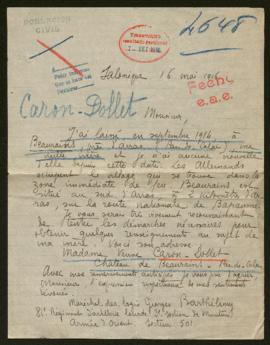 POBLACION
CIVIL
4648
Salonique, 16 mai 1916
Fecha
e.a.e.
Caron-Dollet
Monsieur,
J'ai laissé en septembre 1914, à
Beaurains, près Arras, Pas-de-Calais, ma
vieille mère. Je n'ai aucune nouvelle
d'elle depuis cette date. Les Allemands
occupent le village qui se trouve dans la
zone immédiate de feu. Beaurains est
situé au sud d'Arras, à 2 kilomètres d'Ar-
ras, sur la route nationale de Bapaume.
Je vous serai très vivement reconnaissant
de faire les démarches nécessaires pour
obtenir quelques renseignements au sujet de
ma mère. Voici son adresse
Madame Veuve Caron-Dollet
Château de Beaurains, Pas-de-Calais
Avec mes remerciements anticipés, je vous prie d'agréer,
Monsieur, l'expression de mes sentiments
dévoués.
Maréchal des logis Georges Barthélémy
Régiment d'artillerie lourde
Armée d'Orient Secteur 501